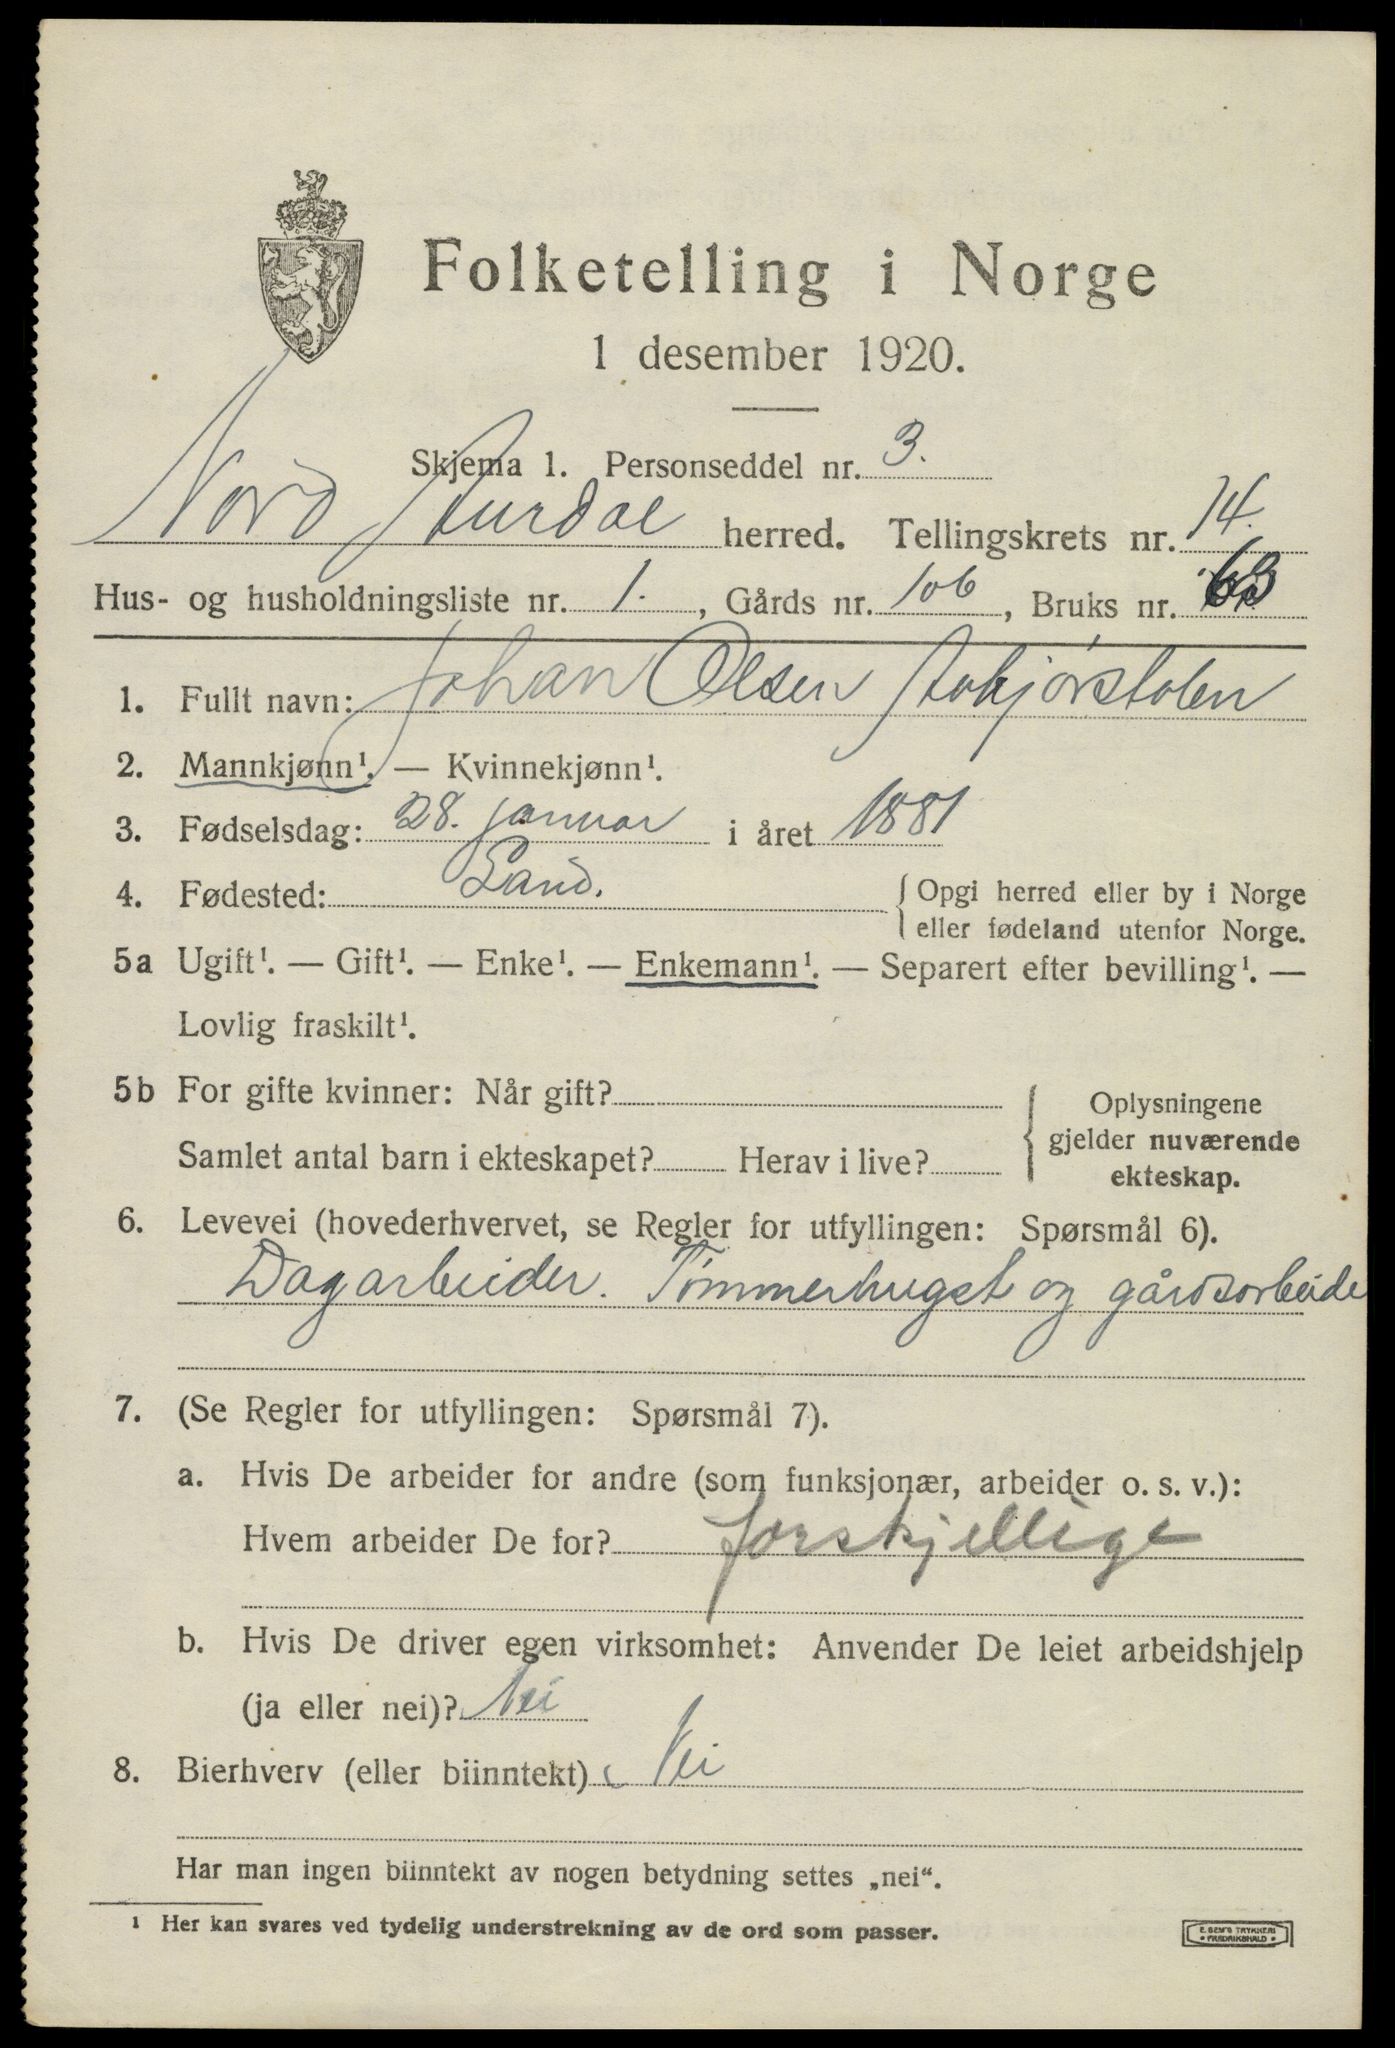 Folketelling i Norge
1 desember 1920.
Skjema 1. Personseddel nr. 3.
Nord Aurdal herred. Tellingskrets nr. 14.
Hus- og husholdningsliste nr. 1., Gårds nr. 106, Bruks nr. 63
1. Fullt navn: Johan Olsen
2. Mannkjønn¹. — Kvinnekjønn¹.
3. Fødselsdag: 28. januar i året 1881
4. Fødested: Land. Opgi herred eller by i Norge
eller fødeland utenfor Norge.
5a Ugift¹. — Gift¹. — Enke¹. — Enkemann¹. — Separert efter bevilling¹. —
Lovlig fraskilt¹.
5b For gifte kvinner: Når gift?
Samlet antal barn i ekteskapet? Herav i live?
Oplysningene
gjelder nuværende
ekteskap.
6. Levevei (hovederhvervet, se Regler for utfyllingen: Spørsmål 6).
Dagarbeider. Tømmerhugst og gårdsarbeide
7. (Se Regler for utfyllingen: Spørsmål 7).
a. Hvis De arbeider for andre (som funksjonær, arbeider o. s. v.):
Hvem arbeider De for? forskjellige
b. Hvis De driver egen virksomhet: Anvender De leiet arbeidshjelp
(ja eller nei)? Nei
8. Bierhverv (eller biinntekt) Nei
Har man ingen biinntekt av nogen betydning settes „nei“.
¹ Her kan svares ved tydelig understrekning av de ord som passer.
E. SEM'S TRYKKERI
FREDRIKSHALD